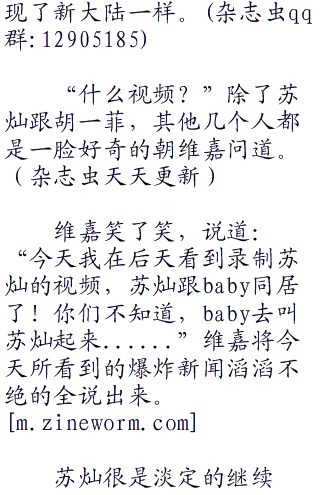 现了新大陆一样。(杂志虫qq
群:12905185)
“什么视频？”除了苏
灿跟胡一菲，其他几个人都
是一脸好奇的朝维嘉问道。
（杂志虫天天更新）
维嘉笑了笑，说道：
“今天我在后天看到录制苏
灿的视频，苏灿跟baby同居
了！你们不知道，baby去叫
苏灿起来......”维嘉将今
天所看到的爆炸新闻滔滔不
绝的全说出来。
[m.zineworm.com]
苏灿很是淡定的继续